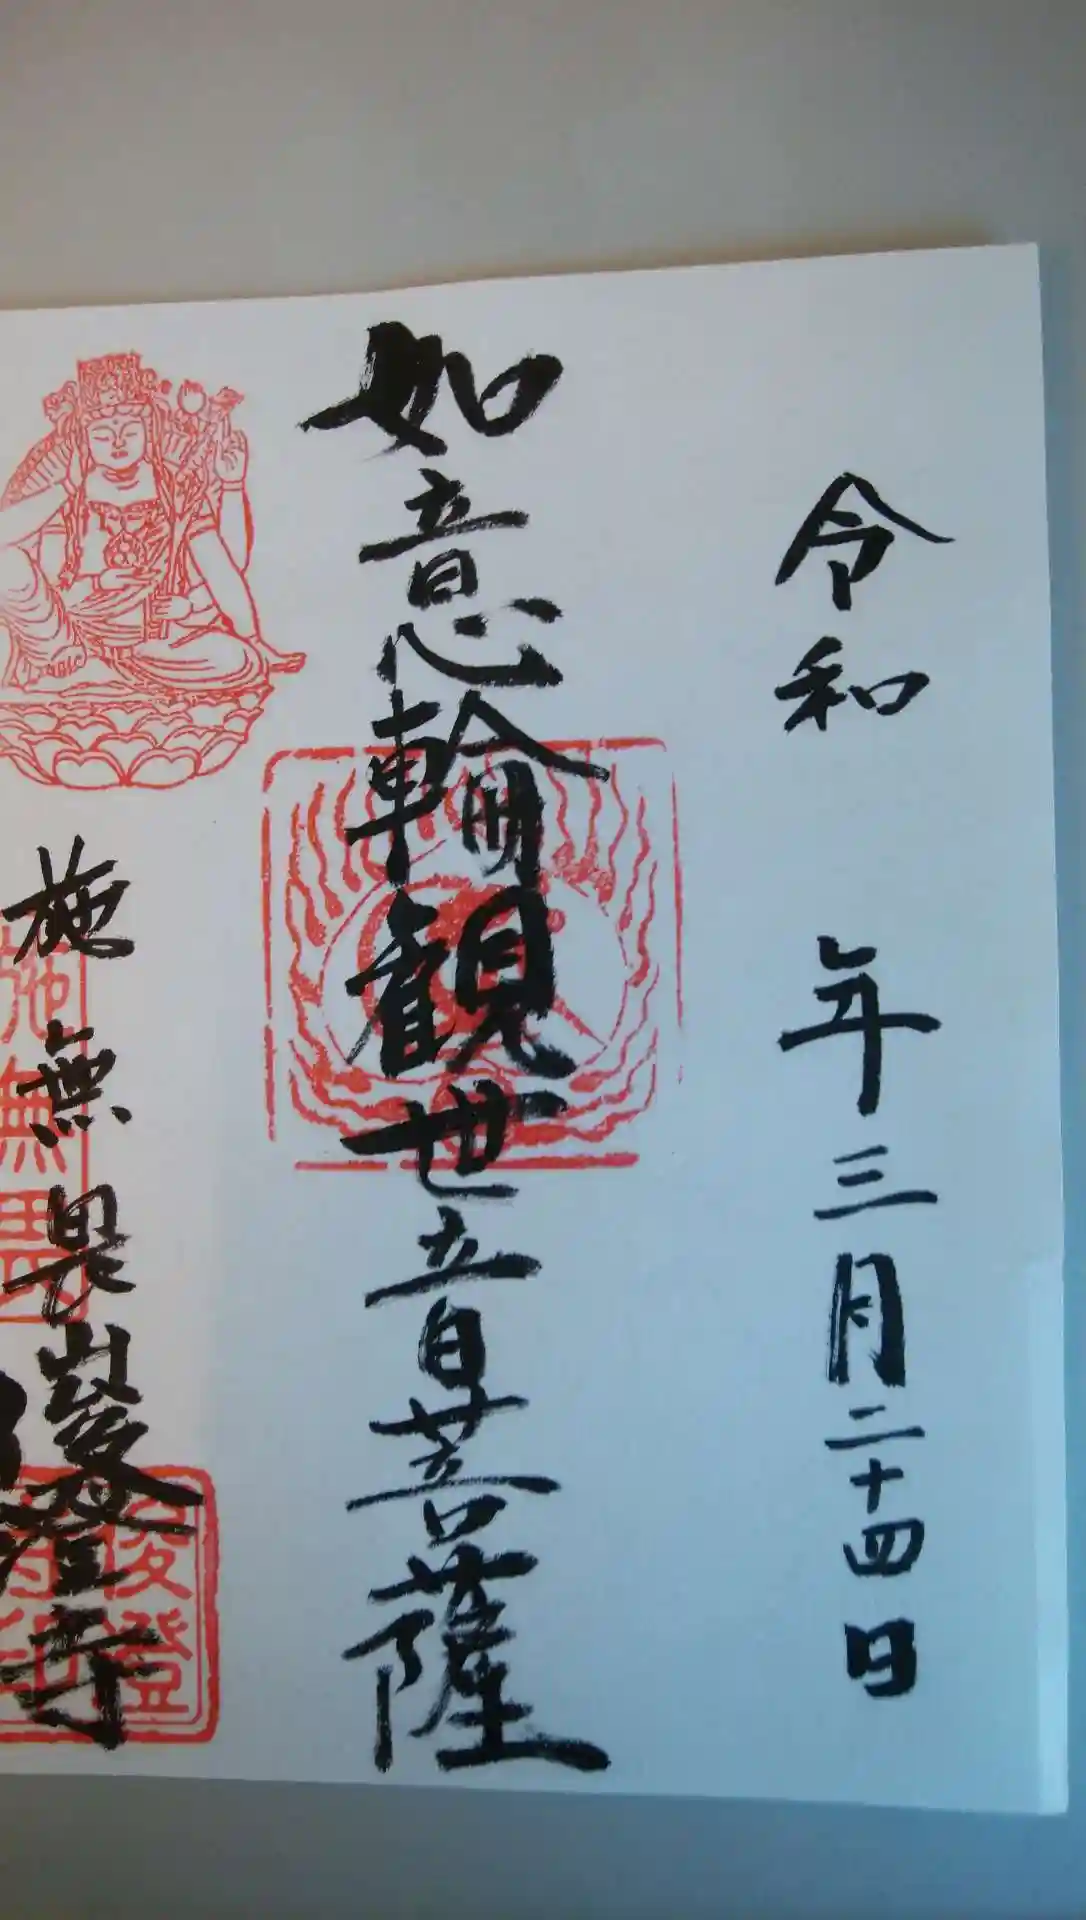 令和 年三月二十四日
如意輪観世音菩薩
施無畏
巌澄寺
施無畏